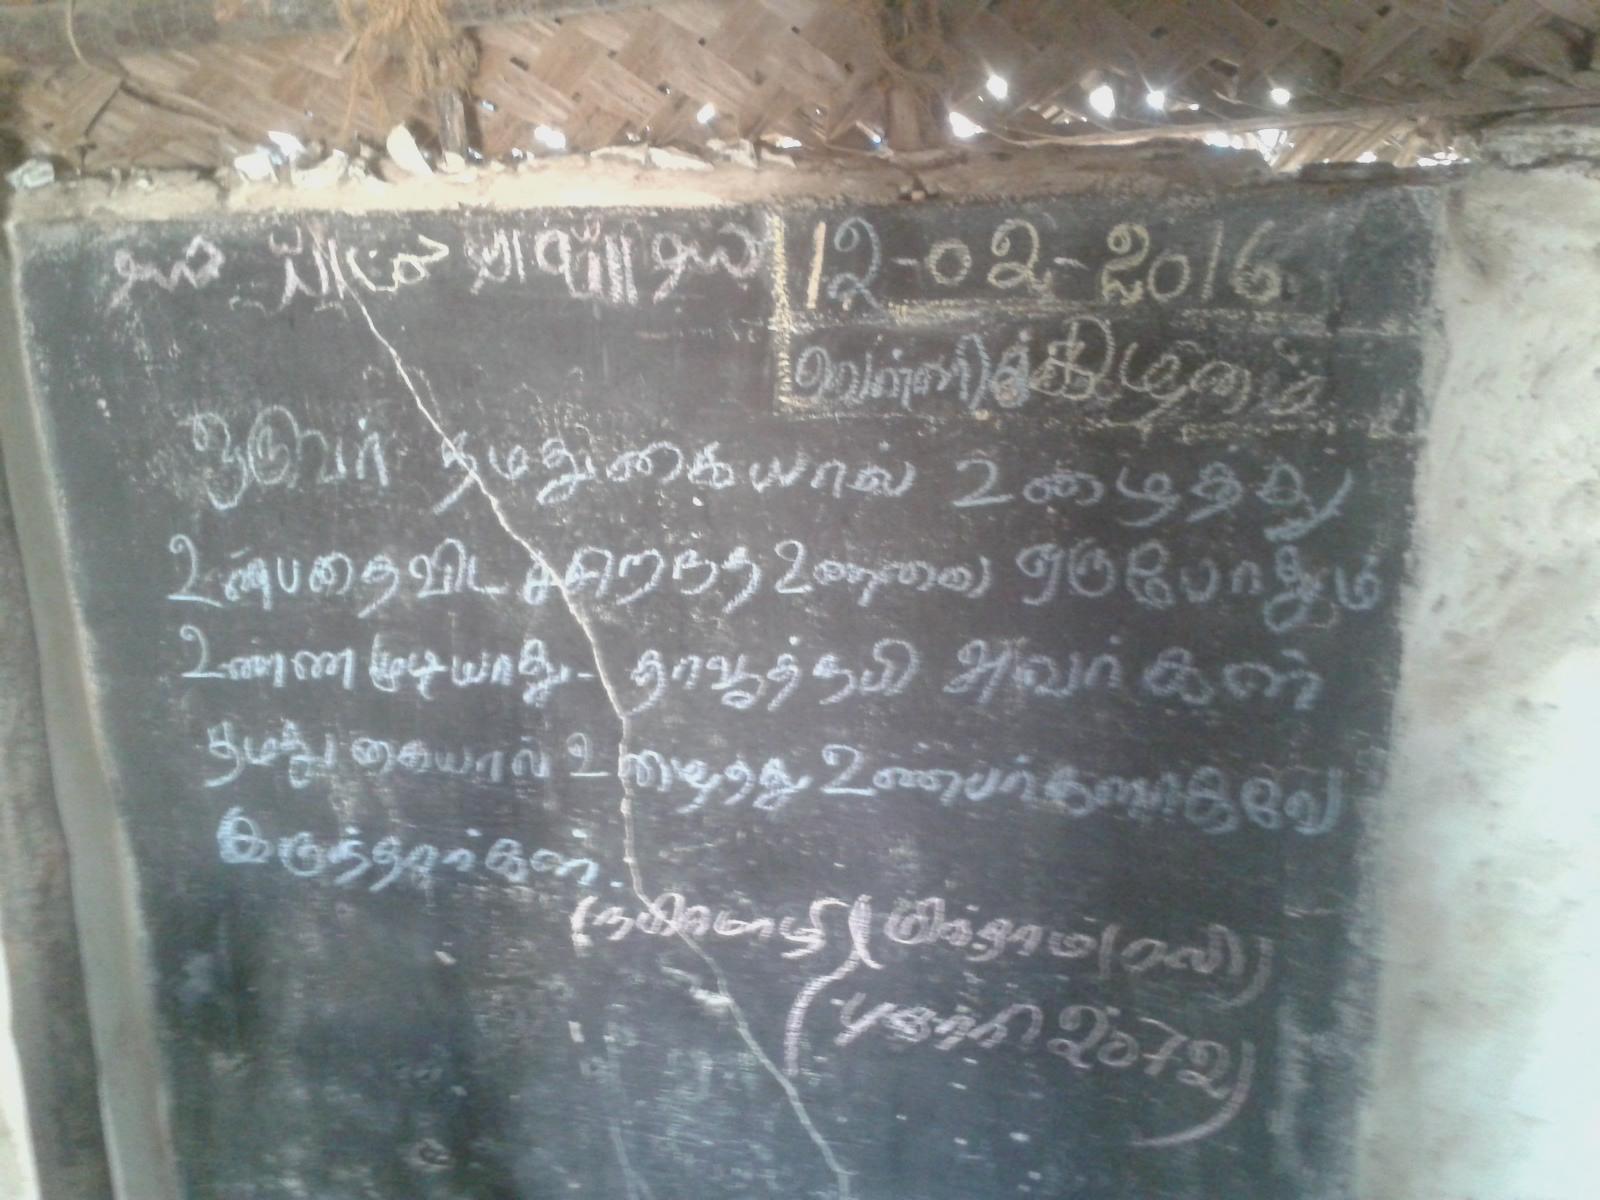 12-02-2016
வெள்ளிக்கிழமை
ஒருவர் தமது கையால் உழைத்து
உண்பதைவிட சிறந்த உணவை ஒருபோதும்
உண்ண முடியாது - தாவூத் நபி அவர்கள்
தமது கையால் உழைத்து உண்பவர்களாகவே
இருந்தார்கள்.
(நபிமொழி) மிக்தாம் (ரலி)
(புகாரி 2072)